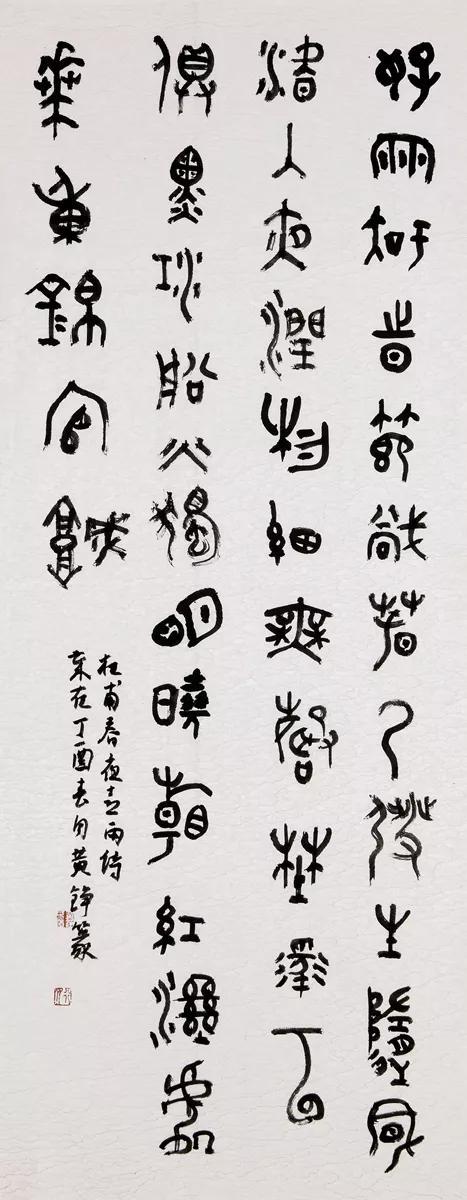 好雨知時節當春乃發生隨風
潛入夜潤物細無聲野徑云
俱黑江船火獨明曉看紅濕處
華重錦官城
杜甫春夜喜雨詩
歲在丁酉春月黃錚篆